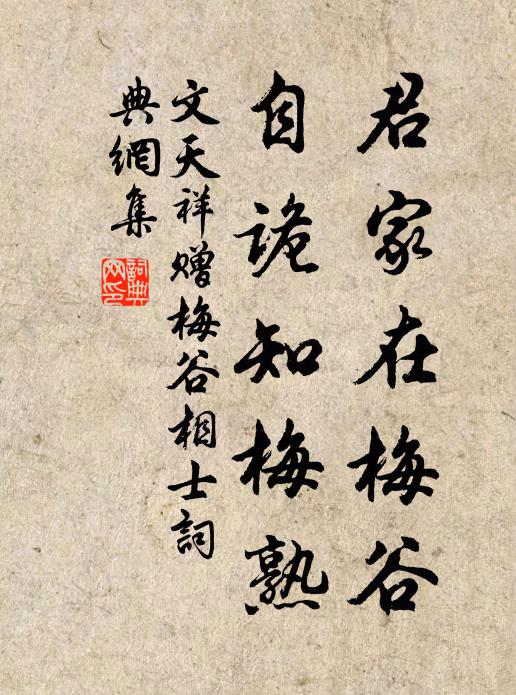 君家在梅谷
自詭知梅熟
文天祥赠梅谷相士詞
典網集
詞典网印